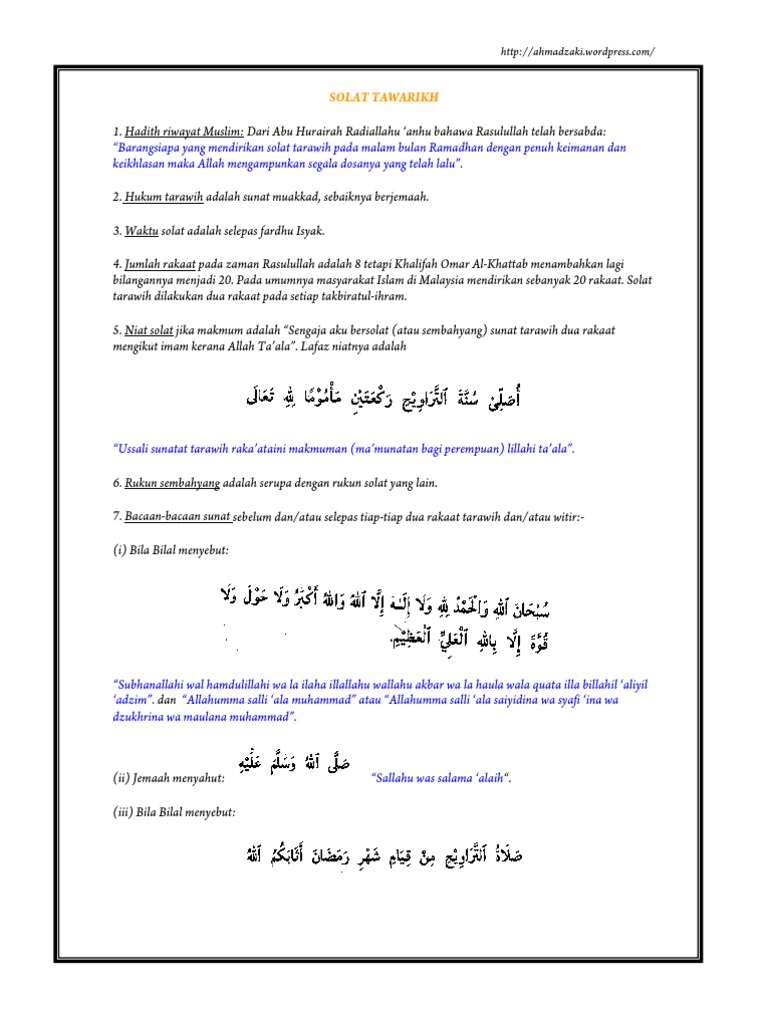 http://ahmadzaki.wordpress.com/
SOLAT TAWARIKH
1. Hadith riwayat Muslim: Dari Abu Hurairah Radiallahu ‘anhu bahawa Rasulullah telah bersabda:
“Barangsiapa yang mendirikan solat tarawih pada malam bulan Ramadhan dengan penuh keimanan dan
keikhlasan maka Allah mengampunkan segala dosanya yang telah lalu”.
2. Hukum tarawih adalah sunat muakkad, sebaiknya berjemaah.
3. Waktu solat adalah selepas fardhu Isyak.
4. Jumlah rakaat pada zaman Rasulullah adalah 8 tetapi Khalifah Omar Al-Khattab menambahkan lagi
bilangannya menjadi 20. Pada umumnya masyarakat Islam di Malaysia mendirikan sebanyak 20 rakaat. Solat
tarawih dilakukan dua rakaat pada setiap takbiratul-ihram.
5. Niat solat jika makmum adalah “Sengaja aku bersolat (atau sembahyang) sunat tarawih dua rakaat
mengikut imam kerana Allah Ta’ala”. Lafaz niatnya adalah
أُصَلِّيْ سُنَّةَ ٱلتَّرَاوِيْحِ رَكْعَتَيْنِ مَأْمُوْمًا لِلهِ تَعَالَى
“Ussali sunatat tarawih raka’ataini makmuman (ma’munatan bagi perempuan) lillahi ta’ala”.
6. Rukun sembahyang adalah serupa dengan rukun solat yang lain.
7. Bacaan-bacaan sunat sebelum dan/atau selepas tiap-tiap dua rakaat tarawih dan/atau witir:-
(i) Bila Bilal menyebut:
سُبْحَانَ ٱللهِ وَٱلْحَمْدُ لِلهِ وَلَا إِلَـٰهَ إِلَّا ٱللهُ وَٱللهُ أَكْبَرُ وَلَا حَوْلَ وَلَا
قُوَّةَ إِلَّا بِٱللهِ ٱلْعَلِيِّ ٱلْعَظِيْمِ.
“Subhanallahi wal hamdulillahi wa la ilaha illallahu wallahu akbar wa la haula wala quata illa billahil ‘aliyil
‘adzim”. dan “Allahumma salli ‘ala muhammad” atau “Allahumma salli ‘ala saiyidina wa syafi ‘ina wa
dzukhrina wa maulana muhammad”.
(ii) Jemaah menyahut: صَلَّى ٱللهُ وَسَلَّمَ عَلَيْهِ “Sallahu was salama ‘alaih“.
(iii) Bila Bilal menyebut:
صَلَاةُ ٱلتَّرَاوِيْحِ مِنْ قِيَامِ شَهْرِ رَمَضَانَ أَثَابَكُمُ ٱللهُ